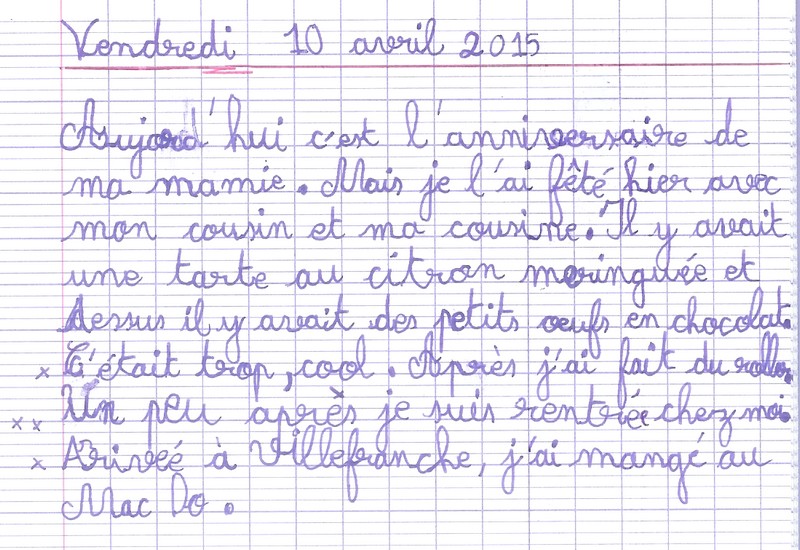 Vendredi 10 avril 2015
Aujourd'hui c'est l'anniversaire de
ma mamie. Mais je l'ai fêté hier avec
mon cousin et ma cousine. Il y avait
une tarte au citron meringuée et
dessus il y avait des petits oeufs en chocolat.
x C'était trop, cool. Après j'ai fait du roller.
x x Un peu après je suis rentrée chez moi.
x Arriveé à Villefranche, j'ai mangé au
Mac Do.